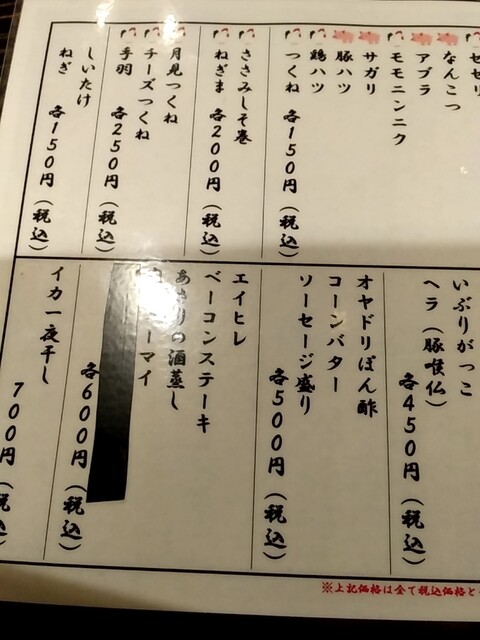 セセリ
なんこつ
アブラ
モモニンニク
サガリ
豚ハツ
鶏ハツ
つくね
各150円(税込)
ささみしそ巻
ねぎま
各200円(税込)
月見つくね
チーズつくね
手羽
各250円(税込)
しいたけ
ねぎ
各150円(税込)
いぶりがっこ
ヘラ(豚喉仏)
各450円(税込)
オヤドリぽん酢
コーンバター
ソーセージ盛り
各500円(税込)
エイヒレ
ベーコンステーキ
あさりの酒蒸し
ーマイ
各600円(税込)
イカ一夜干し
700円(税込)
※上記価格は全て税込価格と